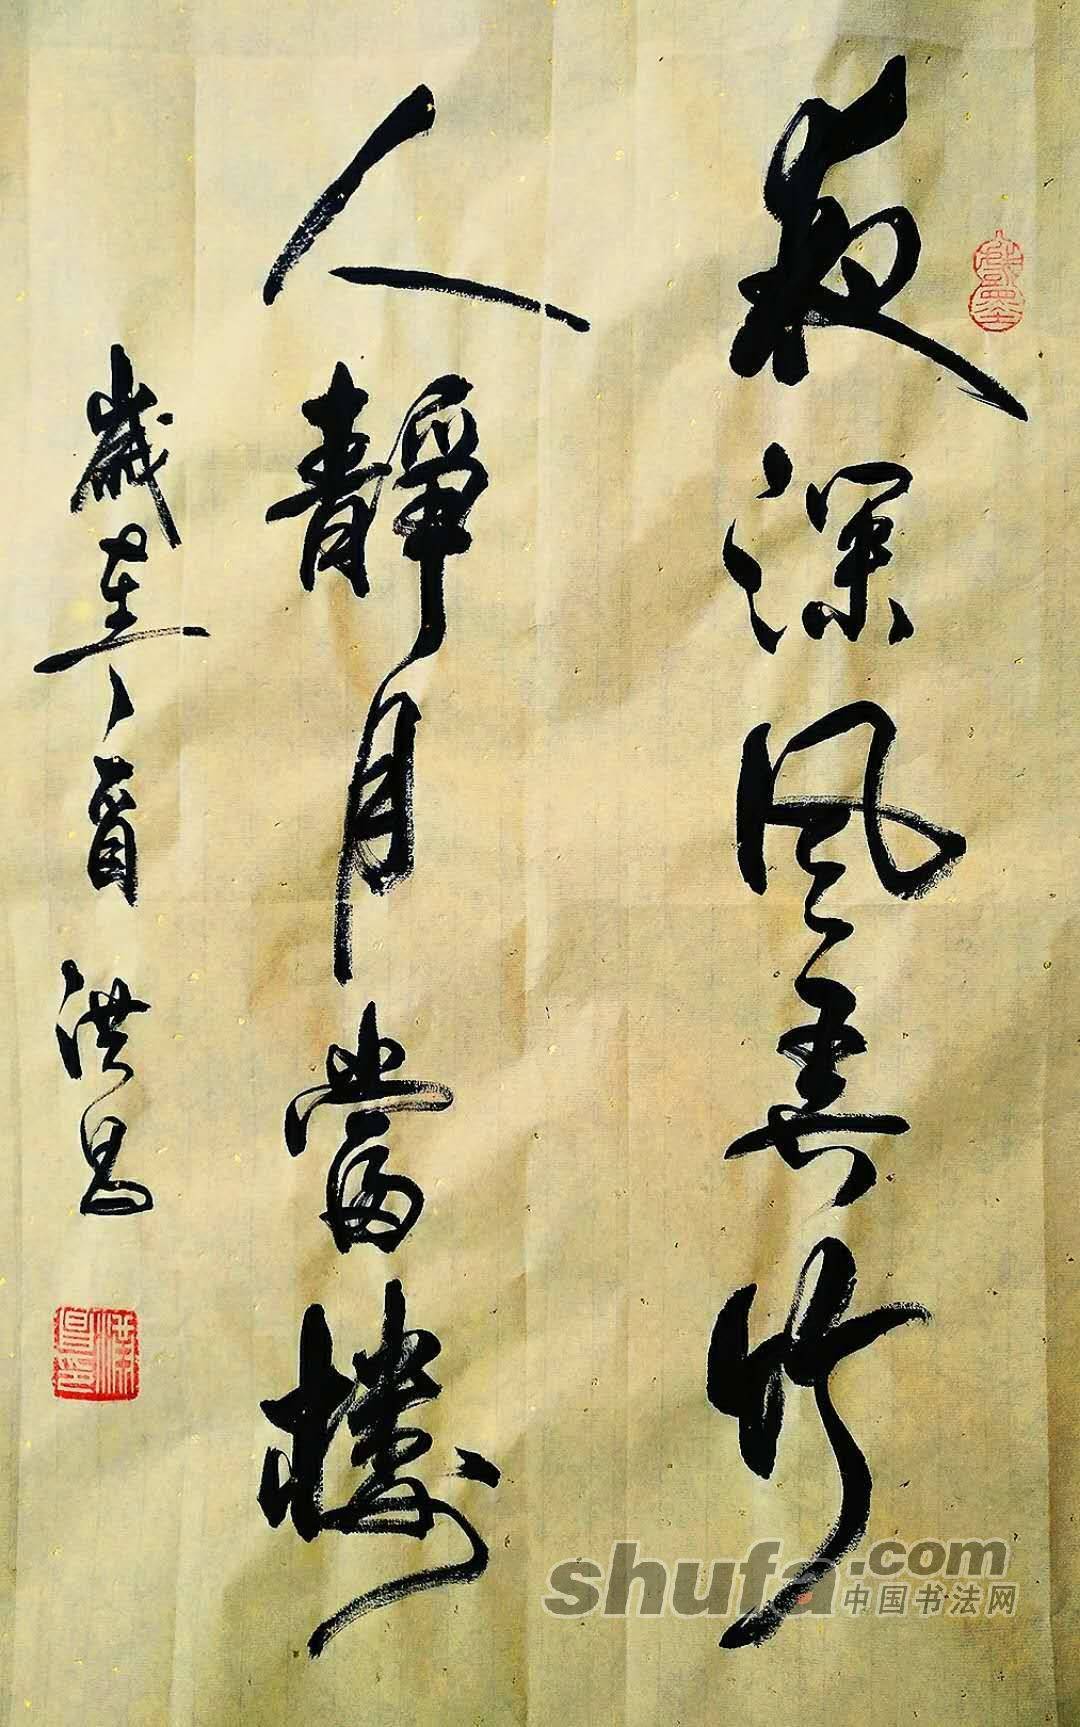 夜深风弄竹
人靜月當樓
歲在丁酉 洪昌
shufa.com
中国书法网